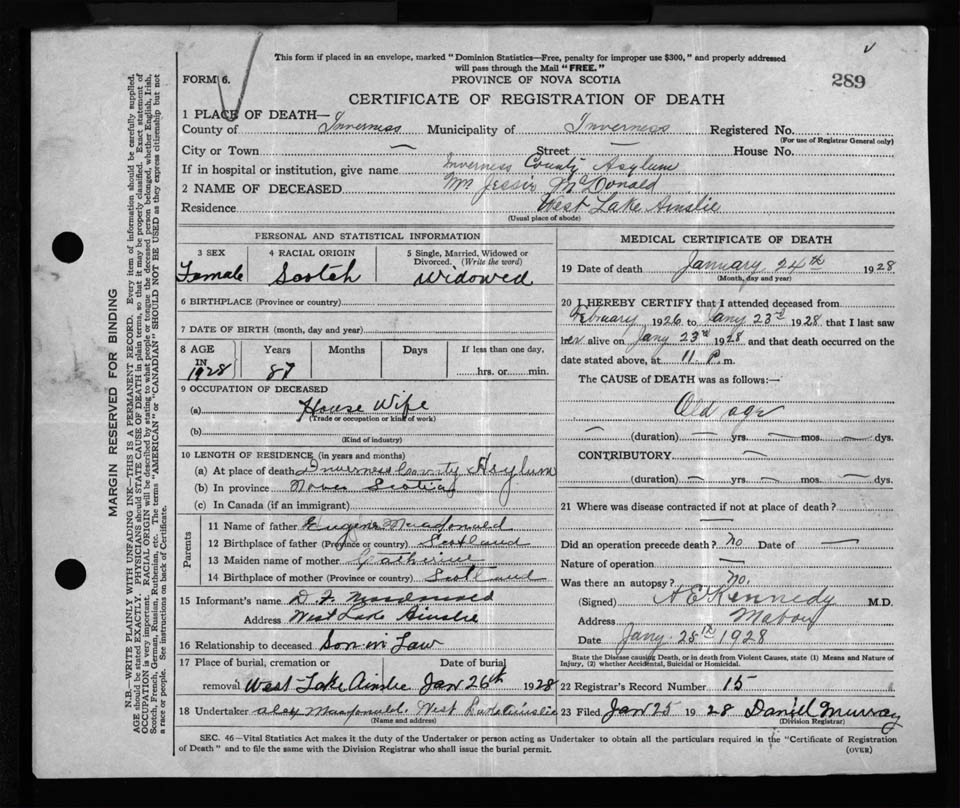 This form if placed in an envelope, marked "Dominion Statistics—Free, penalty for improper use $300," and properly addressed
will pass through the Mail "FREE."
FORM 6.
PROVINCE OF NOVA SCOTIA
289
CERTIFICATE OF REGISTRATION OF DEATH
1 PLACE OF DEATH—
County of Inverness Municipality of Inverness Registered No.
(For use of Registrar General only)
City or Town — Street — House No.
If in hospital or institution, give name Inverness County Asylum
2 NAME OF DECEASED Mrs Jessie McDonald
Residence West Lake Ainslie
(Usual place of abode)
PERSONAL AND STATISTICAL INFORMATION
3 SEX 4 RACIAL ORIGIN 5 Single, Married, Widowed or Divorced. (Write the word)
Female Scotch Widowed
6 BIRTHPLACE (Province or country)
7 DATE OF BIRTH (month, day and year)
8 AGE Years Months Days If less than one day,
IN 1928 87 hrs. or min.
9 OCCUPATION OF DECEASED
(a) House Wife
(Trade or occupation or kind of work)
(b)
(Kind of industry)
10 LENGTH OF RESIDENCE (in years and months)
(a) At place of death Inverness County Asylum
(b) In province Nova Scotia
(c) In Canada (if an immigrant)
Parents
11 Name of father Eugene Macdonald
12 Birthplace of father (Province or country) Scotland
13 Maiden name of mother Catherine
14 Birthplace of mother (Province or country) Scotland
15 Informant's name D. F. Macdonald
Address West Lake Ainslie
16 Relationship to deceased Son in Law
17 Place of burial, cremation or Date of burial
removal West Lake Ainslie Jan 26th 1928
18 Undertaker Alex Macdonald. West Lake Ainslie
(Name and address)
MEDICAL CERTIFICATE OF DEATH
19 Date of death January 24th 1928
(Month, day and year)
20 I HEREBY CERTIFY that I attended deceased from
February 1926 to Jany 23rd 1928 that I last saw
her alive on Jany 23rd 1928 and that death occurred on the
date stated above, at 11 P. m.
The CAUSE of DEATH was as follows:—
Old age
— (duration) — yrs. — mos. — dys.
CONTRIBUTORY —
(duration) yrs. mos. dys.
21 Where was disease contracted if not at place of death?
—
Did an operation precede death? No Date of —
Nature of operation —
Was there an autopsy? No.
(Signed) A E Kennedy M.D.
Address Mabou
Date Jany 28th 1928
State the Disease causing Death, or in death from Violent Causes, state (1) Means and Nature of
Injury, (2) whether Accidental, Suicidal or Homicidal.
22 Registrar's Record Number 15
23 Filed Jan 25 1928 Daniel Murray
(Division Registrar)
SEC. 46—Vital Statistics Act makes it the duty of the Undertaker or person acting as Undertaker to obtain all the particulars required in the "Certificate of Registration
of Death" and to file the same with the Division Registrar who shall issue the burial permit.
(OVER)
MARGIN RESERVED FOR BINDING
N.B.—WRITE PLAINLY WITH UNFADING INK—THIS IS A PERMANENT RECORD. Every item of information should be carefully supplied.
AGE should be stated EXACTLY. PHYSICIANS should STATE CAUSE OF DEATH in plain terms, so that it may be properly classified. Exact statement of
OCCUPATION is very important. RACIAL ORIGIN will be described by stating to what people or tongue the deceased person belonged, whether English, Irish,
Scotch, French, German, Russian, Ruthenian, etc. The terms "AMERICAN" or "CANADIAN" SHOULD NOT BE USED as they express citizenship but not
a race or people. See instructions on back of Certificate.